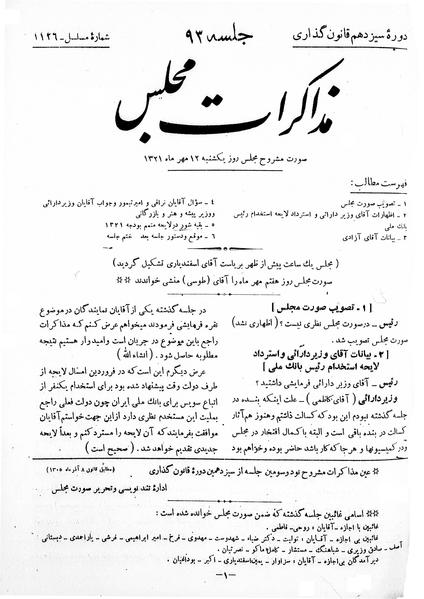 دورهٔ سیزدهم قانون گذاری
جلسه ۹۳
شمارهٔ مسلسل - ۱۱۲۶
مذاکرات مجلس
صورت مشروح مجلس روز یکشنبه ۱۲ مهر ماه ۱۳۲۱
فهرست مطالب:
۱ - تصویب صورت مجلس
۲ - اظهارات آقای وزیر دارائی و استرداد لایحه استخدام رئیس
بانک ملی
۳ - بیانات آقای آزادی
۴ - سؤال آقایان نراقی و امیرتیمور و جواب آقایان وزیر دارائی
و وزیر پیشه و هنر و بازرگانی
۵ - بقیه شور در لایحه متمم بودجه ۱۳۲۱
۶ - موقع و دستور جلسه بعد - ختم جلسه
(مجلس یک ساعت پیش از ظهر بریاست آقای اسفندیاری تشکیل گردید)
صورت مجلس روز هفتم مهر ماه را آقای (طوسی) منشی خواندند ※※
[ ۱ - تصویب صورت مجلس ]
رئیس - در صورت مجلس نظری نیست؟ (اظهاری نشد)
صورت مجلس تصویب شد.
[ ۲- بیانات آقای وزیر دارائی و استرداد
لایحه استخدام رئیس بانک ملی ]
رئیس - آقای وزیر دارائی فرمایشی داشتید؟
وزیر دارائی (آقای کاظمی) - علت اینکه بنده در
جلسه گذشته نبودم این بود که کسالت داشتم و هنوز هم آثار
کسالت در بنده باقی است و البته با کمال افتخار در مجلس
و در کمیسیونها و هر جا که کار باشد حاضر بوده و خواهم بود
در جلسه گذشته یکی از آقایان نمایندگان در موضوع
نقره فرمایشی فرمودند میخواهم عرض کنم که مذاکرات
راجع باین موضوع در جریان است و امیدوار هستیم نتیجه
مطلوبه حاصل شود. (انشاء الله)
عرض دیگرم این است که در فروردین امسال لایحه از
طرف دولت وقت پیشنهاد شده بود برای استخدام یکنفر از
اتباع سویس برای بانک ملی ایران چون دولت فعلی راجع
بملیت این مستخدم نظری دارد از این جهت خواستم آقایان
موافقت بفرمایند که آن لایحه را مسترد کنم و بعداً لایحه
جدیدی تقدیم خواهد شد. (صحیح است)
※ عین مذاکرات مشروح نود و سومین جلسه از سیزدهمین دورهٔ قانون گذاری
(مطابق قانون ۸ آذر ماه ۱۳۰۵)
ادارهٔ تند نویسی و تحریر صورت مجلس
※※ اسامی غائبین جلسه گذشته که ضمن صورت مجلس خوانده شده است:
غائبین با اجازه - آقایان: روحی - فاطمی.
غائبین بی اجازه - آقایان: تولیت - دکتر ضیاء - شهدوست - مهدوی - فرخ - امیر ابراهیمی - فرشی - پاراحمدی - دبستانی
آصف - صادق وزیری - شباهنگ - مستشار - کامل ماکو - نصرتیان.
دیر آمدگان بی اجازه - آقایان: سزاوار - یمین اسفندیاری - اکبر - بوداغیان.
-۱-